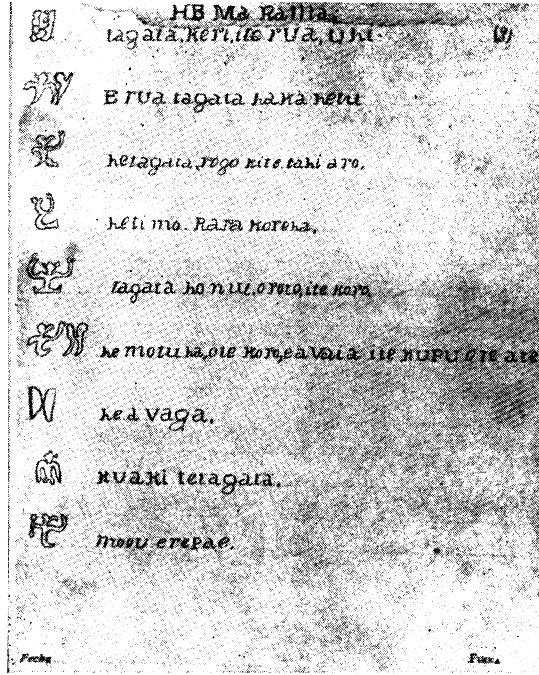 HE Ma Rama.
tagata, Keri, ite rUa, Uhi. (3)
E rUa tagata haka hetu
hetagata, rogo kite. tahi aro.
heti mo. Rara Korena.
tagata ho nui, oroto, ite Koro,
he motuha, ote Koro, ea Vaia ite KUPU ote ate
hea vaga.
KUaKi teragata.
erepae.
Fecha